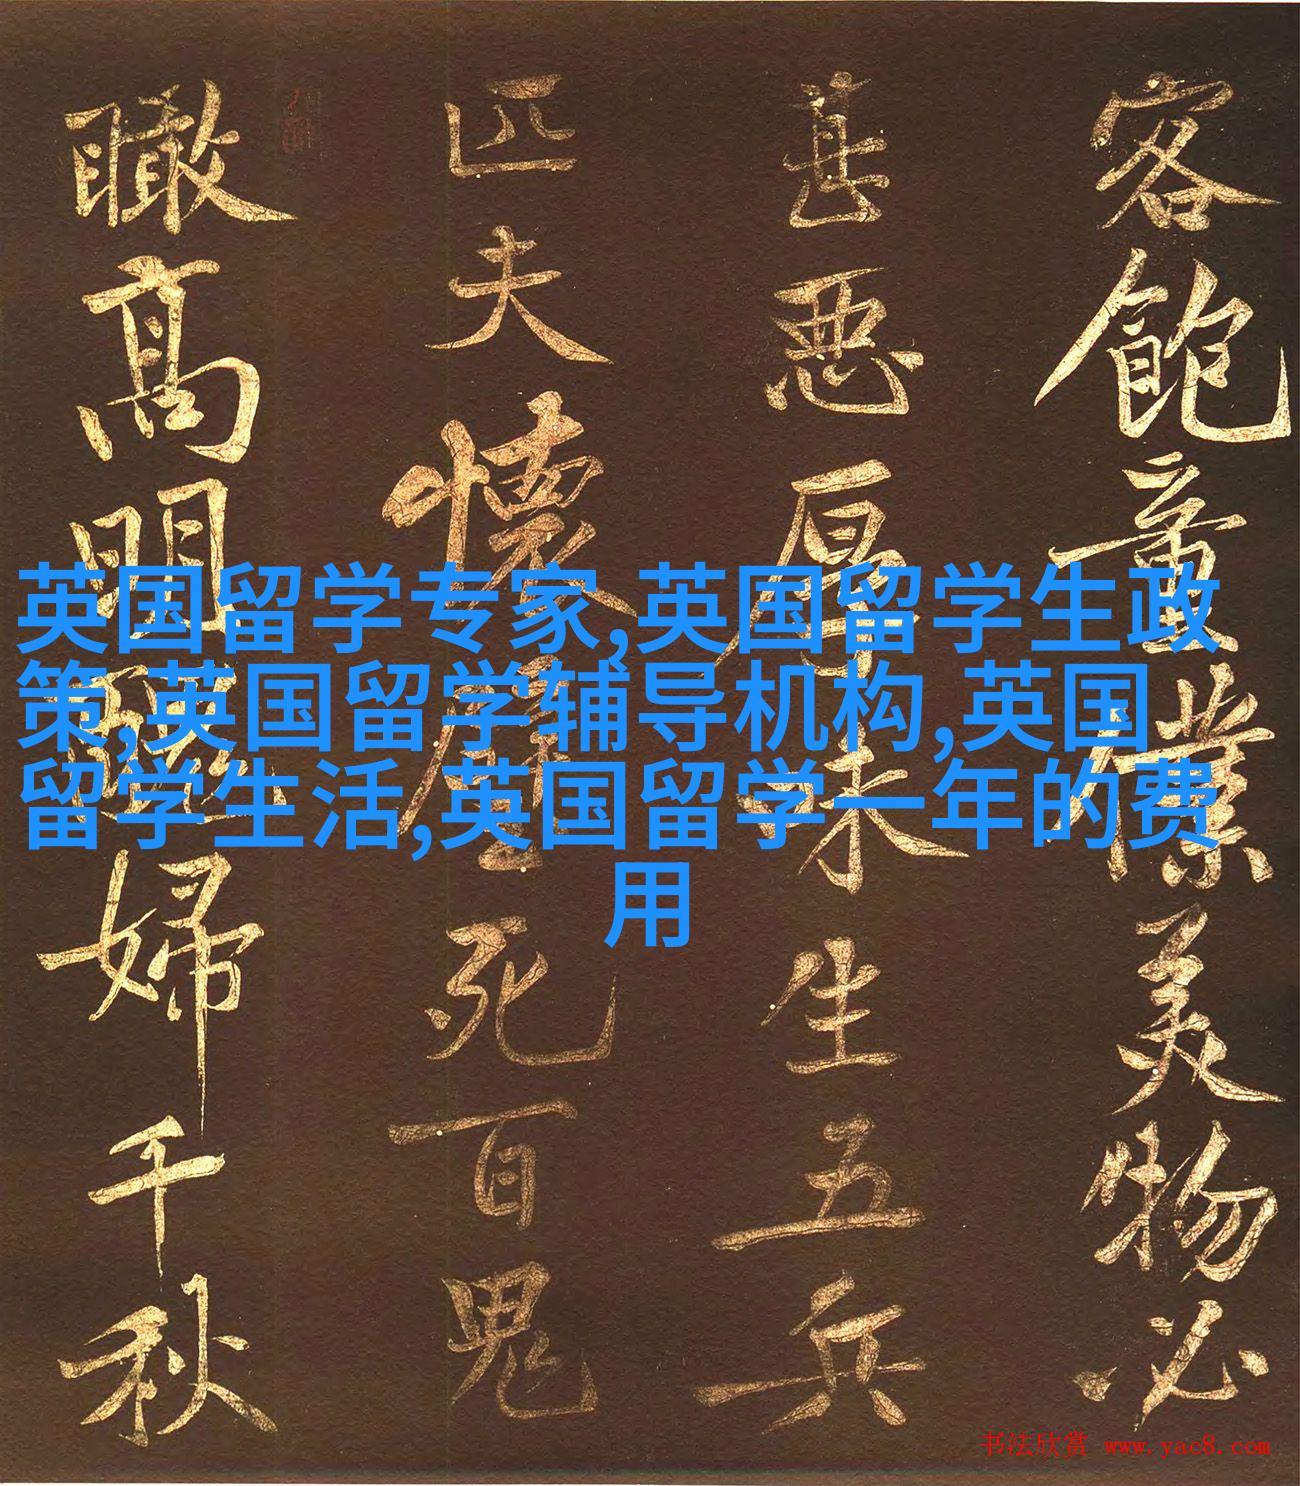 客飽童僕美物必
甚惡厚味生五兵
匹夫懷璧死百鬼
瞰高明醜婦千秋
英国留学专家,英国留学生政
策,英国留学辅导机构,英国
留学生活,英国留学一年的费
用
书法欣赏 www.yac8.com